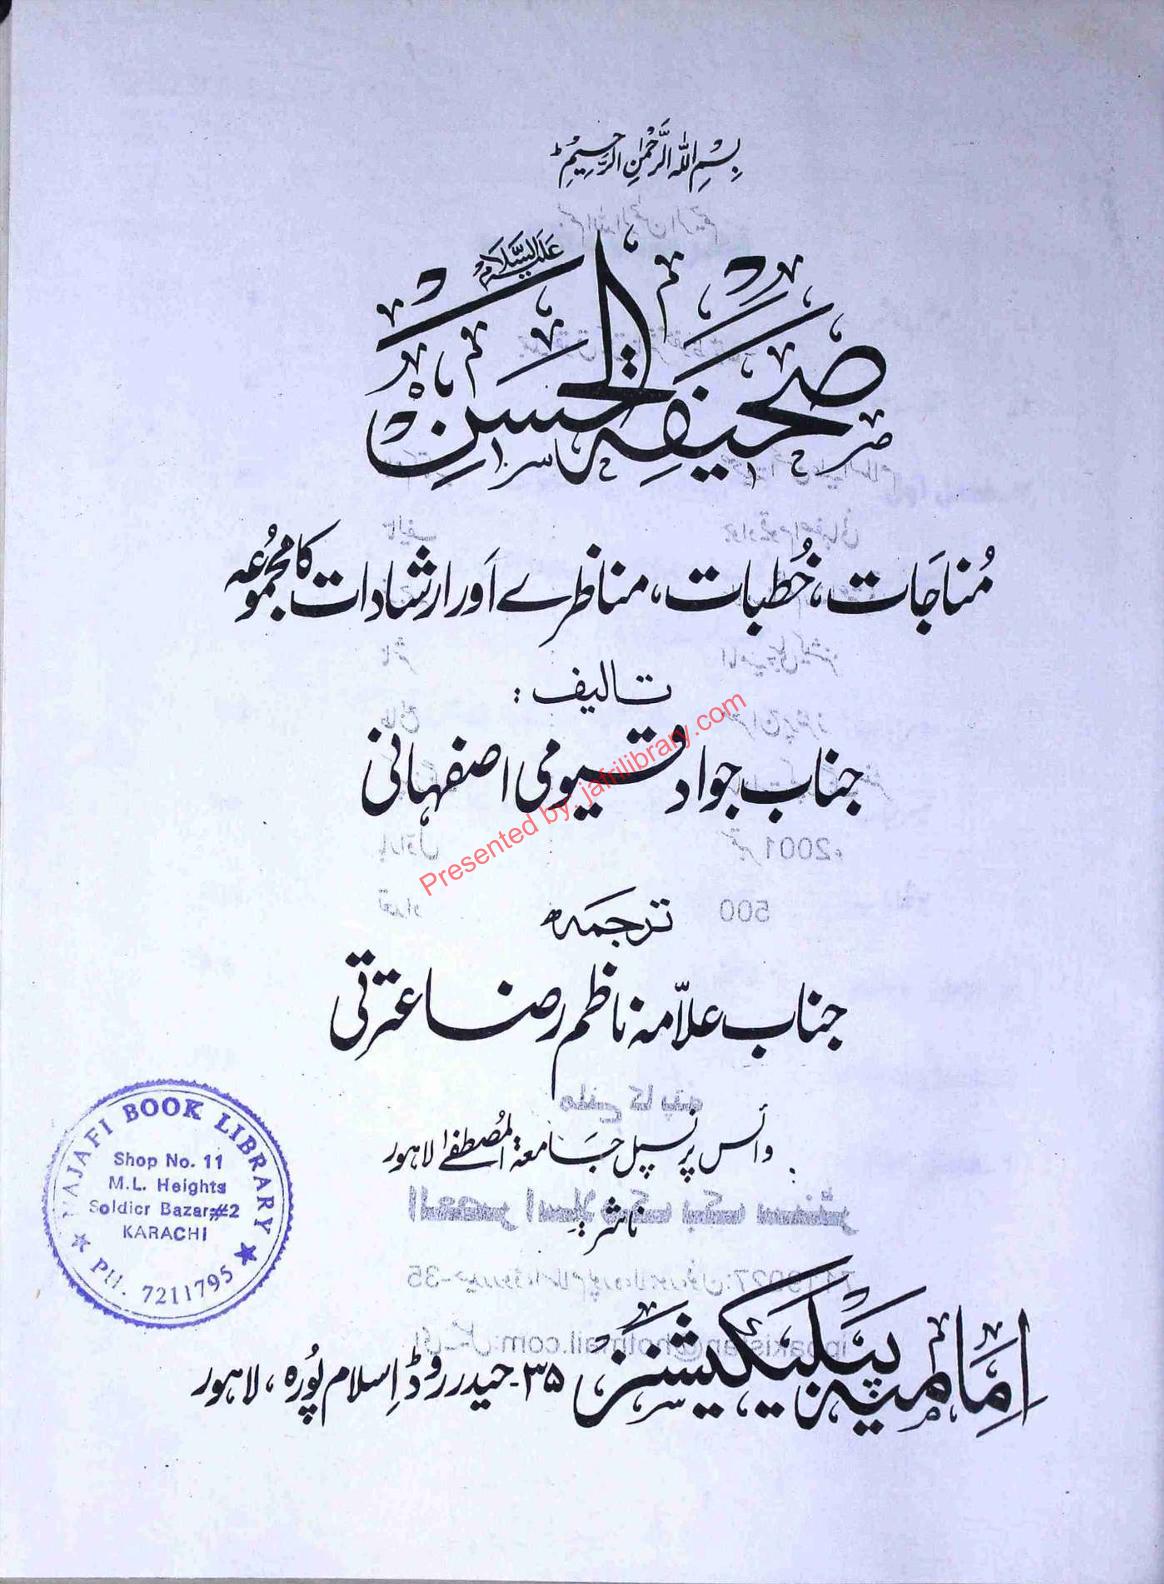 بِسْمِ اللّٰهِ الرَّحْمٰنِ الرَّحِیْمِ ط
صَحِیْفَۃُ الْحَسَنِ عَلَیْہِ السَّلَامُ
مُناجَات، خُطبات، مناظرے اَور ارشادات کا مجموُعہ
تالیف :
جناب جواد قیومی اصفہانی
ترجمہ
جناب علاّمہ ناظم رضا عترتی
وائس پرنسپل جَامعۃ المُصطفےٰ لاہور
ناشر :
اِمامیہ پبلیکیشنز ۳۵۔ حیدر روڈ اِسلام پُورہ ، لاہور
Presented by: jafrilibrary.com
NAJAFI BOOK LIBRARY
Shop No. 11
M.L. Heights
Soldier Bazar #2
KARACHI
PH. 7211795